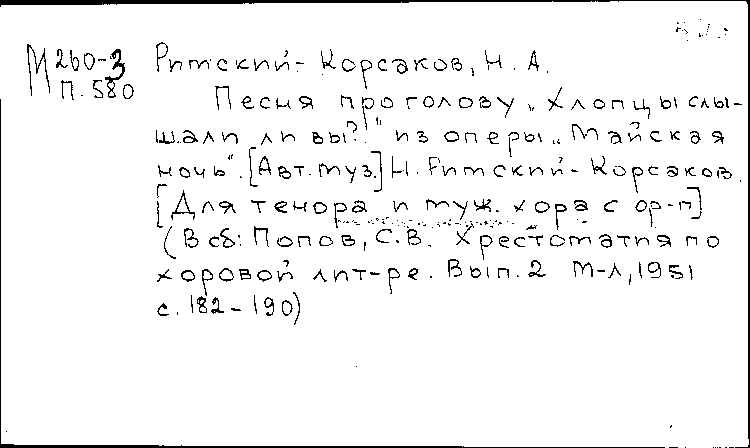 М 260-3 Римский-Корсаков, Н. А.
П. 580
Песня про голову „Хлопцы слы-
шали ли вы?!" из оперы „Майская
ночь". [Авт. муз.] Н. Римский-Корсаков.
[Для тенора и муж. хора с ф-п]
(В сб: Попов, С.В. Хрестоматия по
хоровой лит-ре. Вып. 2 М-Л, 1951
с. 182-190)